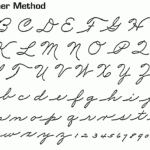 er Method
B C D E F G H
K L M N O P Q
T U V W X Y Z
b c d e f g h i
m n o p q r s t
w x y z 1 2 3 4 5 6 7 8 9